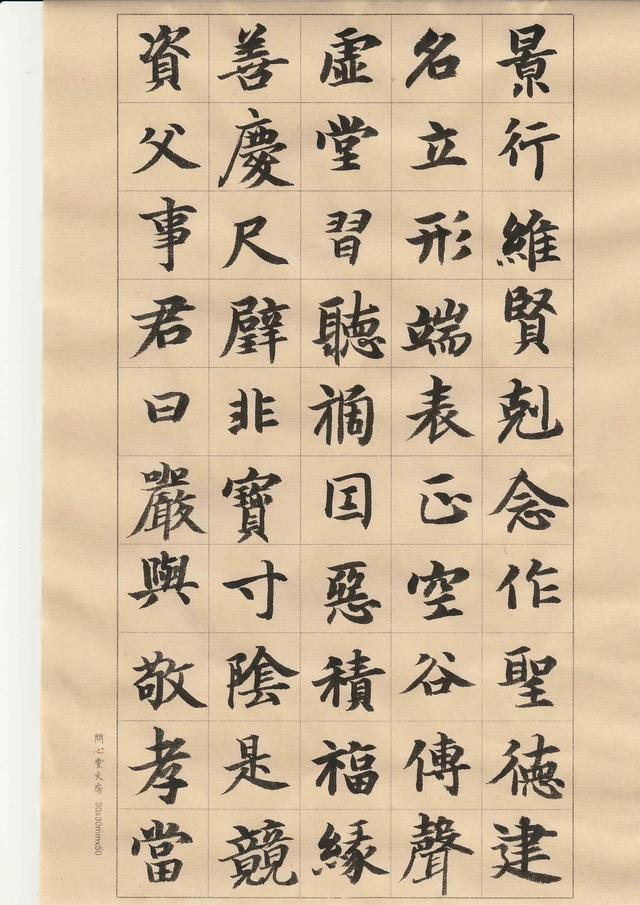 景行維賢剋念作聖德建
名立形端表正空谷傳聲
虛堂習聽禍因惡積福緣
善慶尺璧非寶寸陰是競
資父事君曰嚴與敬孝當
問心堂文房 30x30mmx50